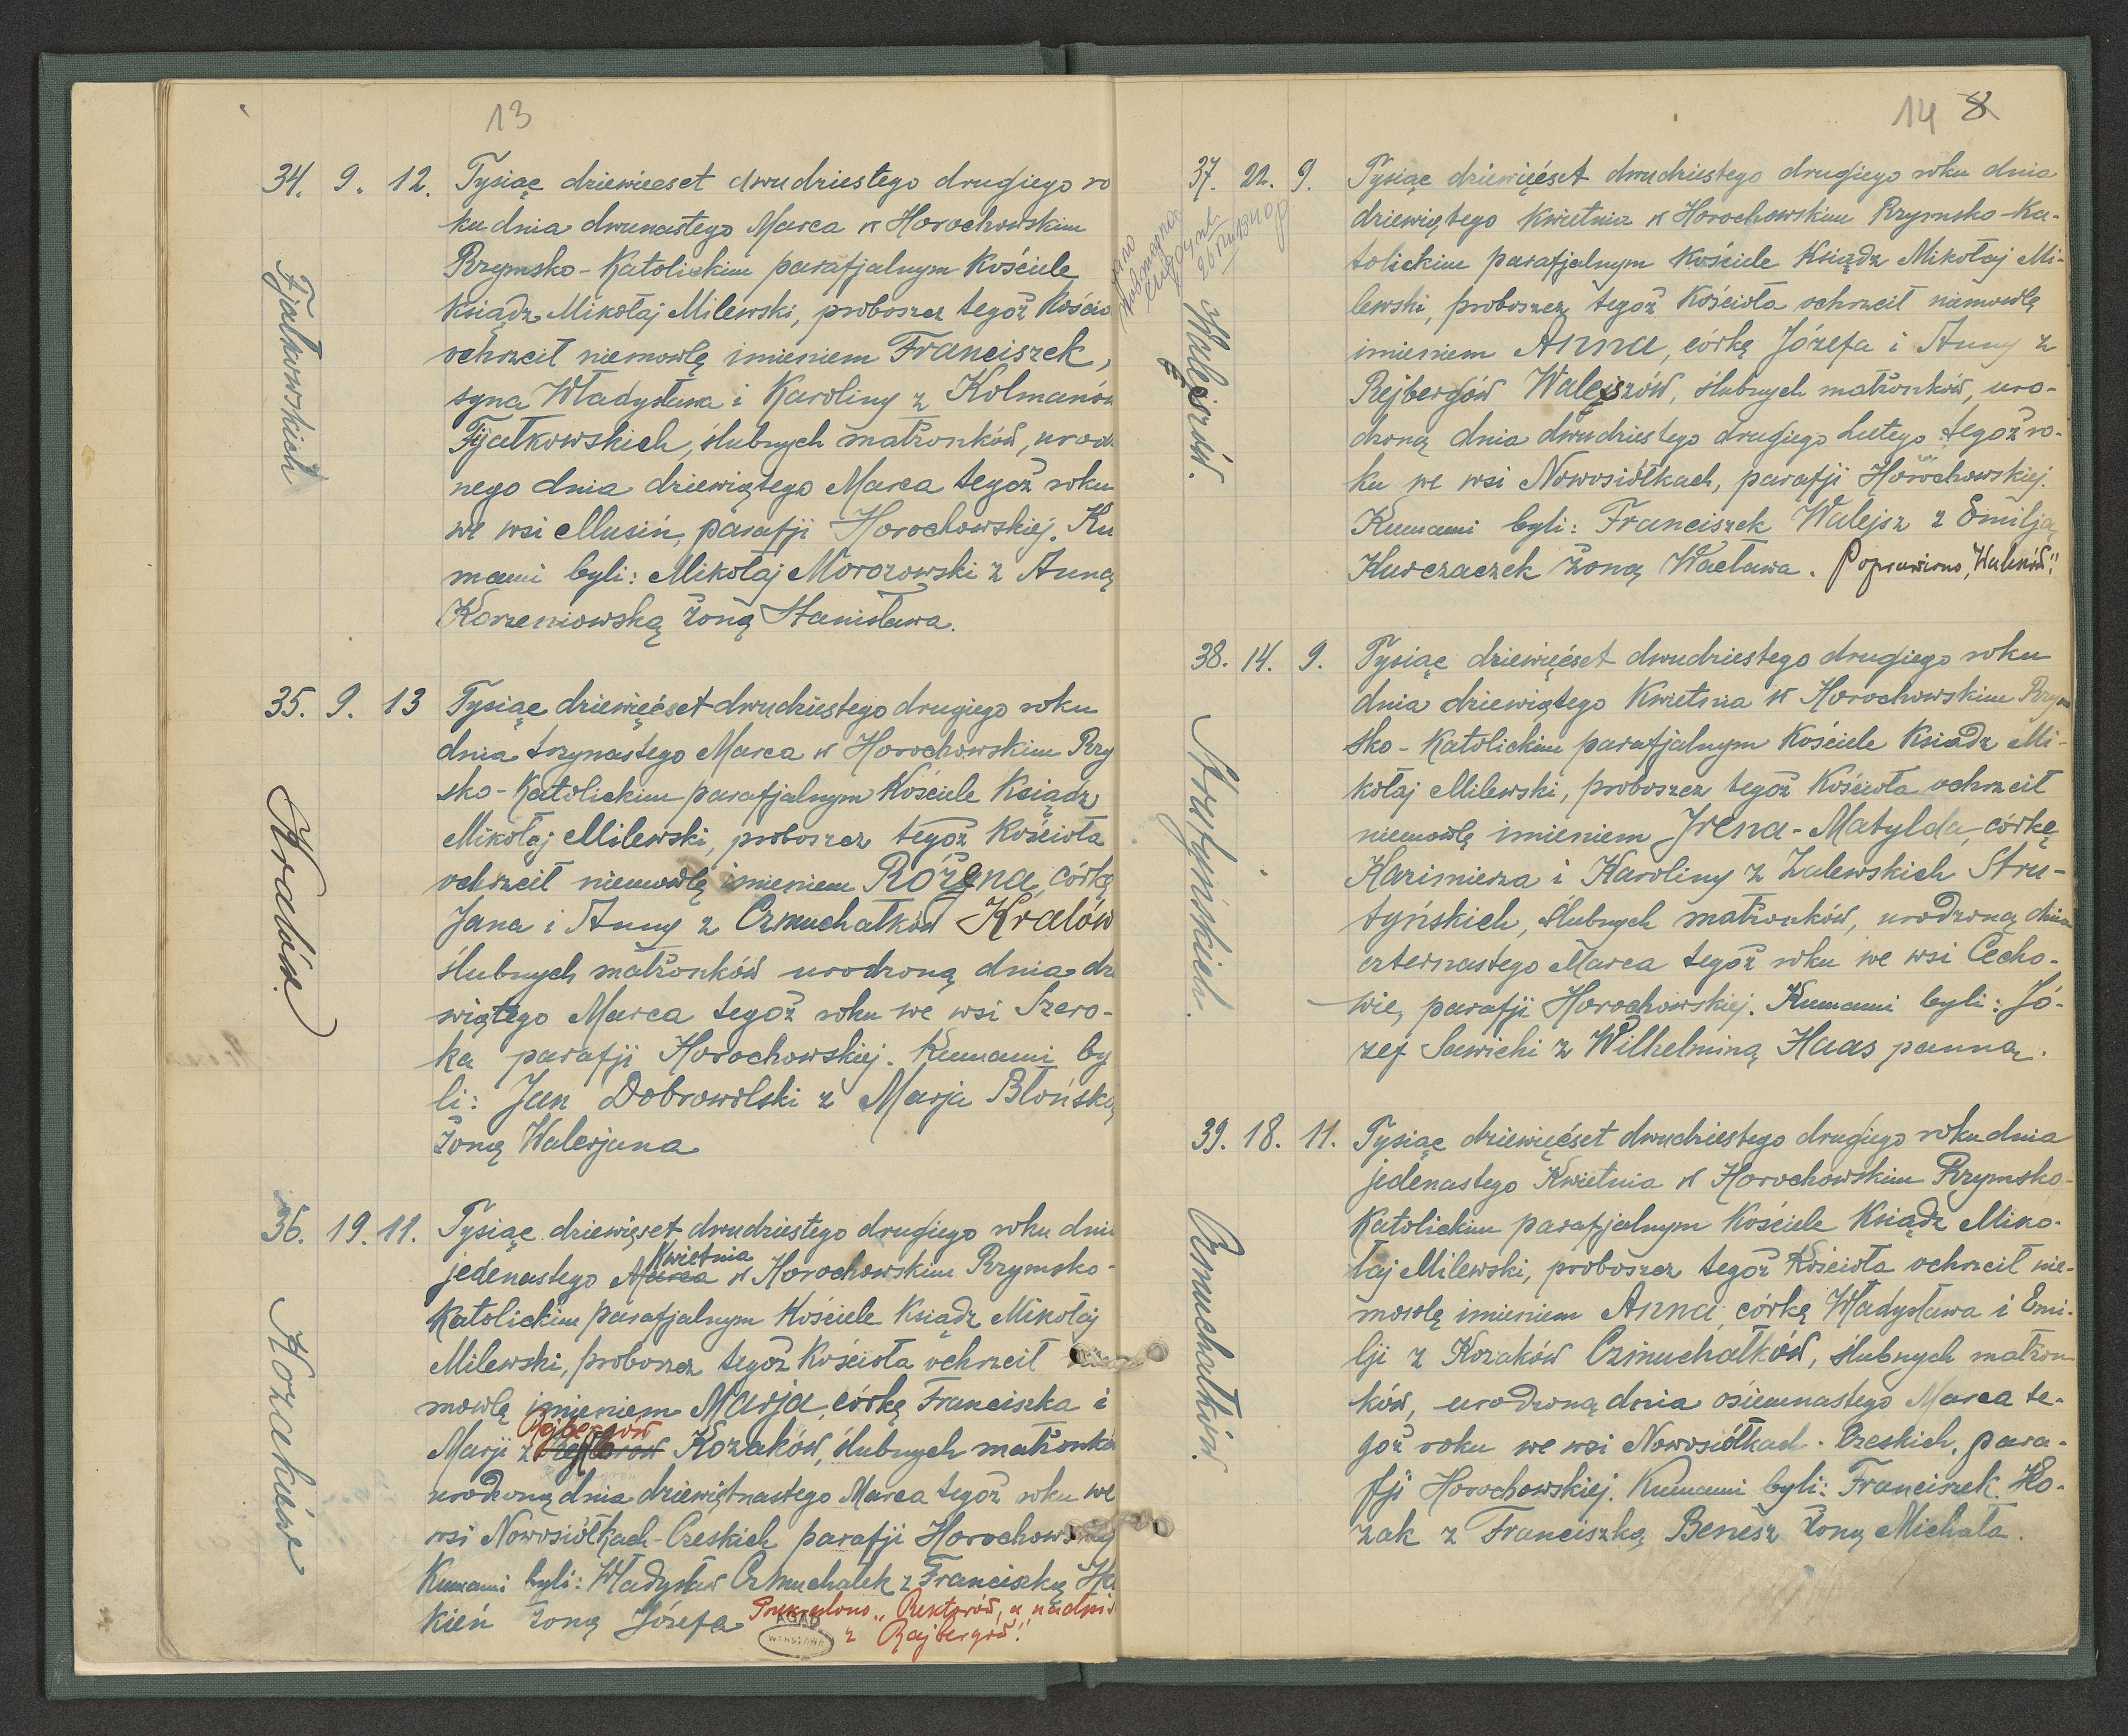 13
34. 9. 12. Tysiąc dziewięcset dwudziestego drugiego ro
ku dnia dwunastego Marca w Horochowskim
Rzymsko-Katolickim parafjalnym Kościele
Ksiądz Mikołaj Milewski, proboszcz tegoż Kościo
ochrzcił niemowlę imieniem Franciszek,
syna Władysława i Karoliny z Kolmanów
Fijałkowskich, ślubnych małżonków, urod
nego dnia dziewiątego Marca tegoż roku
we wsi Musin, parafji Horochowskiej. Ku
mami byli: Mikołaj Morozowski z Anną
Korzeniowską żoną Stanisława.
Fjałkowskich
35. 9. 13 Tysiąc dziewięćset dwudziestego drugiego roku
dnia trzynastego Marca w Horochowskim Rzy
sko-Katolickim parafjalnym Kościele Ksiądz
Mikołaj Milewski, proboszcz tegoż Kościoła
ochrzcił niemowlę imieniem Różena, córkę
Jana i Anny z Czmuchałków Kralów
ślubnych małżonków urodzoną dnia dz
wiątego Marca tegoż roku we wsi Szero-
ka parafji Horochowskiej. Kumami by
li: Jan Dobrowolski z Marja Błońską
żoną Walerjana
Kralów.
36. 19. 11. Tysiąc dziewięset dwudziestego drugiego roku dnia
Kwietnia
jedenastego Marca w Horochowskim Rzymsko-
Katolickim parafjalnym Kościele Ksiądz Mikołaj
Milewski, proboszcz tegoż Kościoła ochrzcił
mowlę imieniem Marja, córkę Franciszka i
Rajbergów
Marji z Kozaków, ślubnych małżonków
urodzoną dnia dziewiętnastego Marca tegoż roku we
wsi Nowosiółkach-Czeskich parafji Horochowskiej
Kumami byli: Władysław Czmuchałek z Franciszką Ha
kień żoną Józefa Przekreślono „Rektorów, a nadpis
z Rajbergów."
AGAD
WARSZAWA
Kozaków
14 8
37. 22. 9. Tysiąc dziewięćset dwudziestego drugiego roku dnia
dziewiątego Kwietnia w Horochowskim Rzymsko-Ka-
tolickim parafjalnym Kościele Ksiądz Mikołaj Mi-
lewski, proboszcz tegoż Kościoła ochrzcił niemowlę
imieniem Anna, córkę Józefa i Anny z
Rejbergów Walejszów, ślubnych małżonków, uro-
dzoną dnia dwudziestego drugiego Lutego tegoż ro-
ku we wsi Nowosiółkach, parafji Horochowskiej.
Kumami byli: Franciszek Walejsz z Emilją
Kurczaczek żoną Wacława. Poprawiono
Walejszów.
38. 14. 9. Tysiąc dziewięćset dwudziestego drugiego roku
dnia dziewiątego Kwietnia w Horochowskim Rzym
sko-Katolickim parafjalnym Kościele Ksiadz Mi-
kołaj Milewski, proboszcz tegoż Kościoła ochrzcił
niemowlę imieniem Jrena-Matylda, córkę
Kazimierza i Karoliny z Zalewskich Stru-
tyńskich, ślubnych małżonków, urodzoną dnia
czternastego Marca tegoż roku we wsi Cecho-
wie, parafji Horochowskiej. Kumami byli: Jó-
zef Sawicki z Wilhelminą Haas panną.
Strutyńskich.
39. 18. 11. Tysiąc dziewięćset dwudziestego drugiego roku dnia
jedenastego Kwietnia w Horochowskim Rzymsko-
Katolickim parafjalnym Kościele Ksiądz Miko-
łaj Milewski, proboszcz tegoż Kościoła ochrzcił nie-
mowlę imieniem Anna, córkę Władysława i Emi-
lji z Kozaków Czmuchałków, ślubnych małżon
ków, urodzoną dnia ośiemnastego Marca te-
goż roku we wsi Nowosiółkach-Czeskich, para-
fji Horochowskiej. Kumami byli: Franciszek Ko-
zak z Franciszką Benesz żoną Michała.
Czmuchałków.